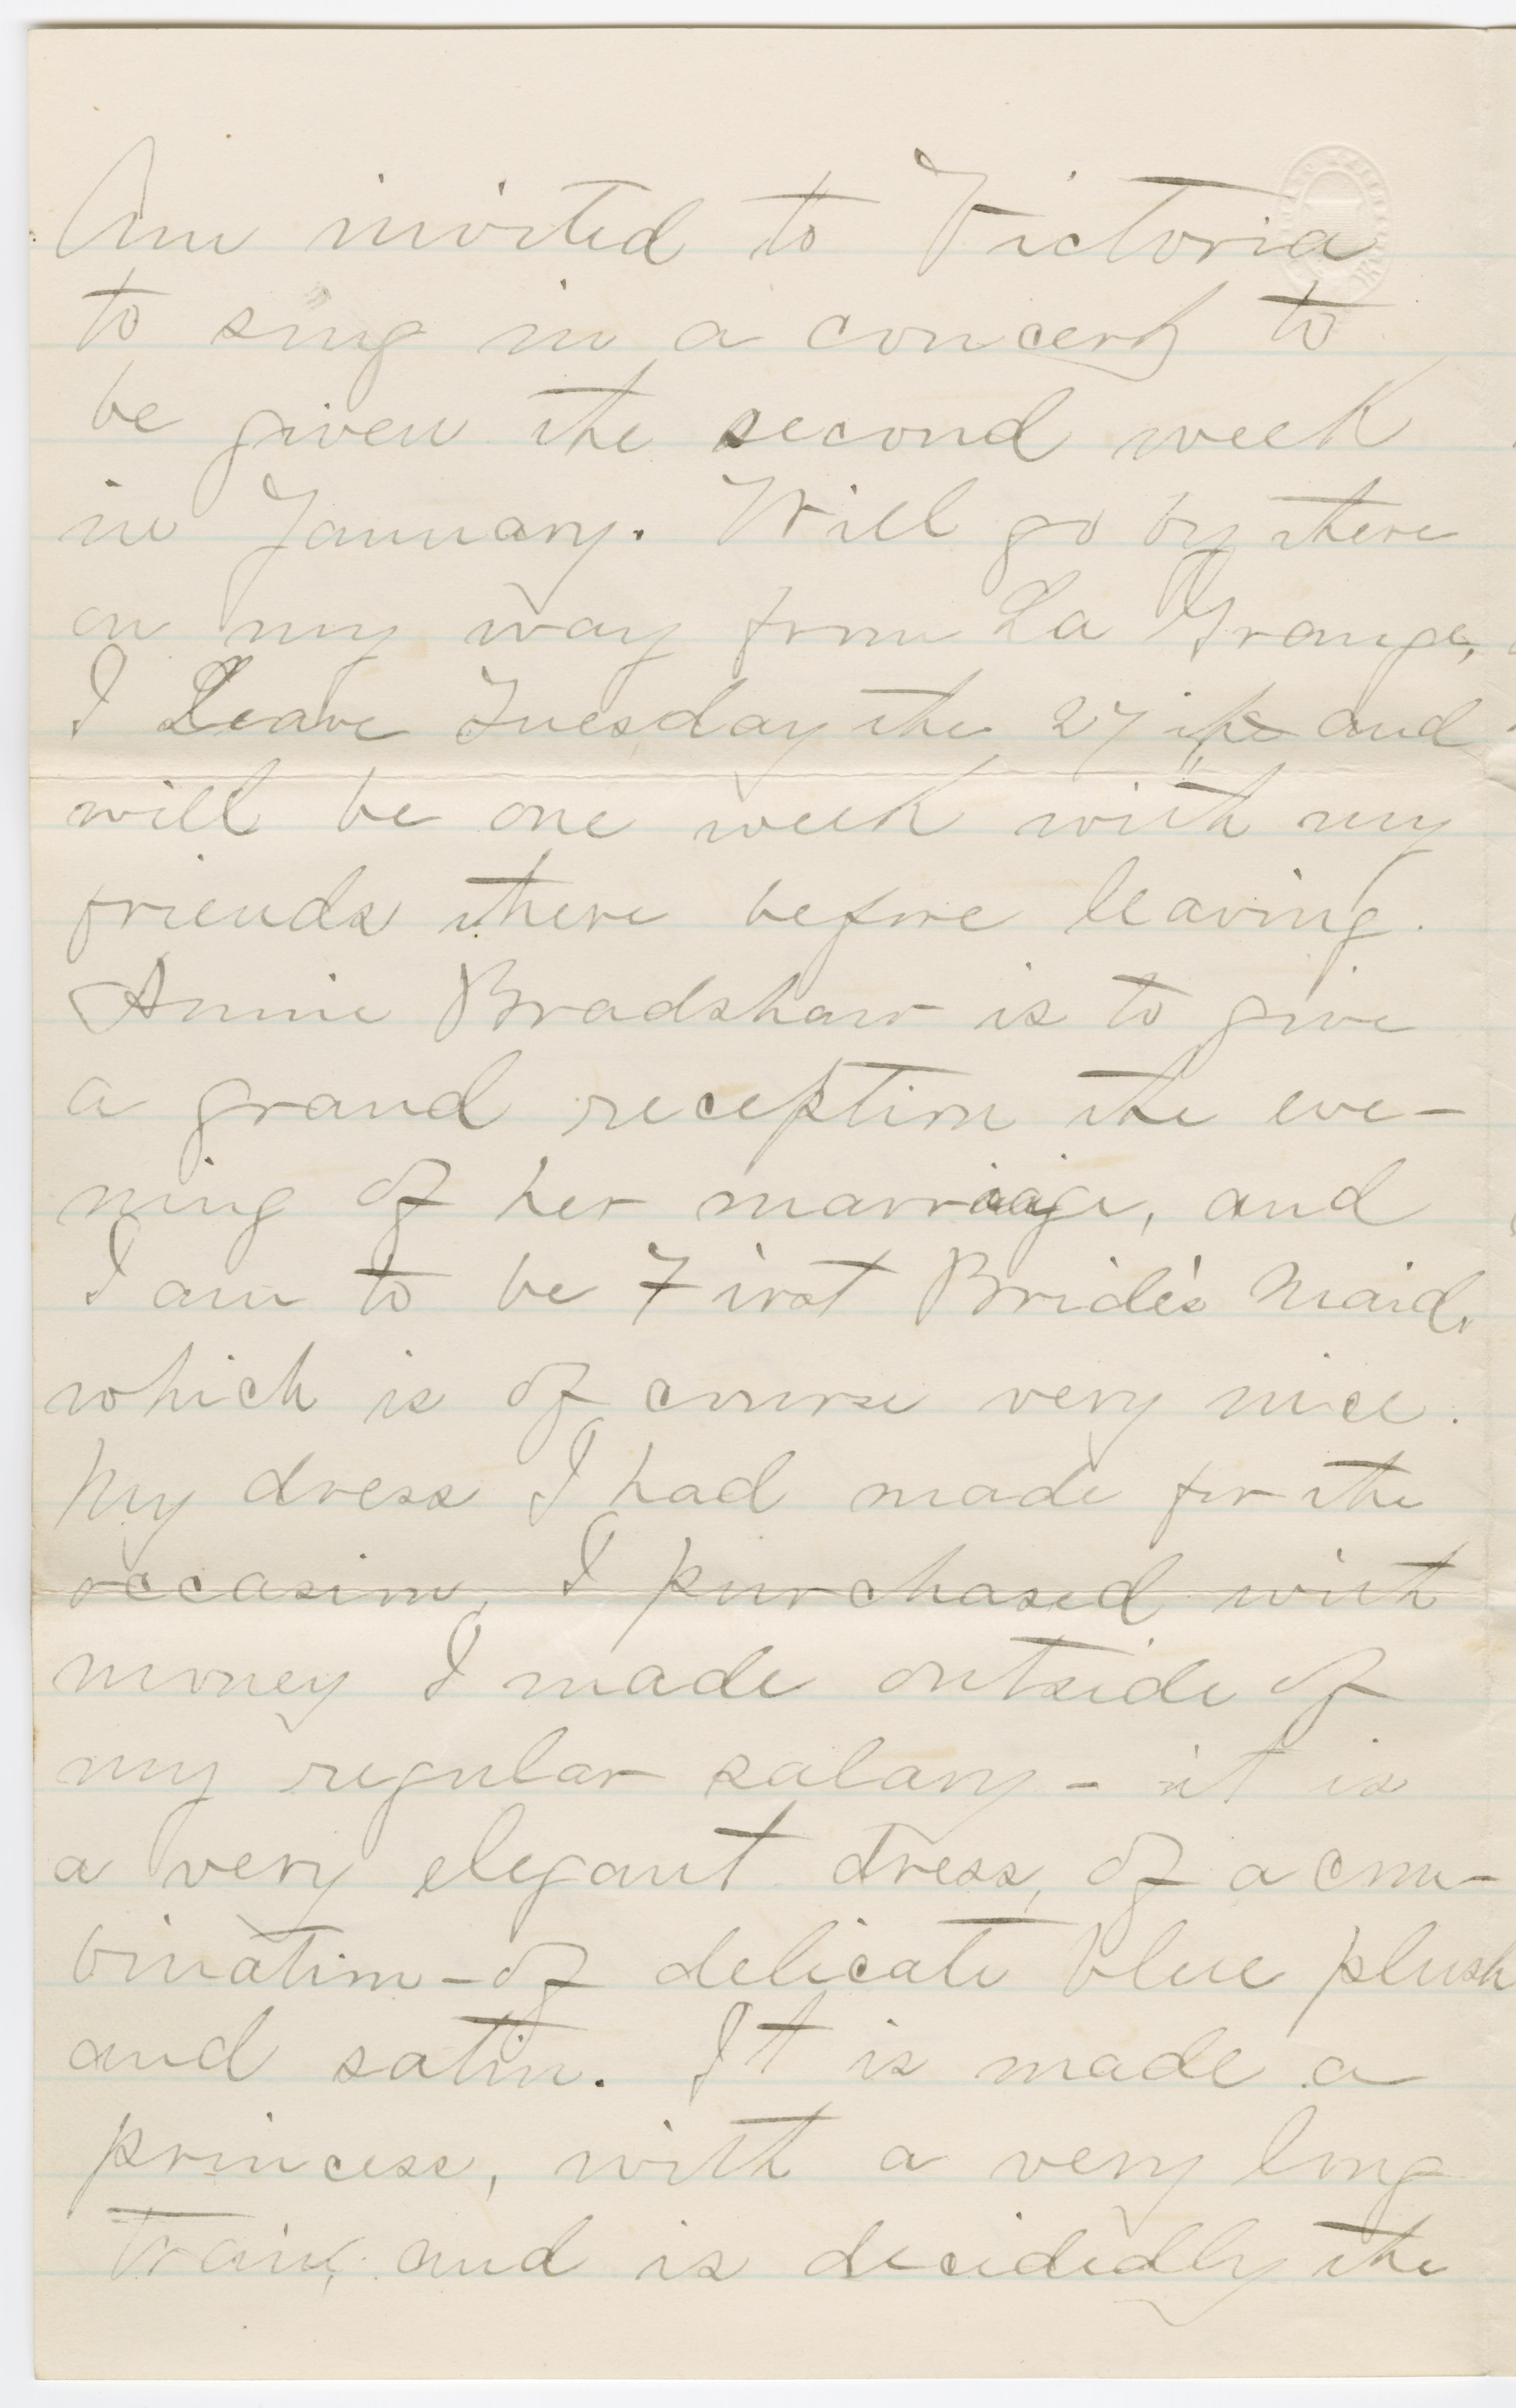 Am invited to Victoria
to sing in a concert to
be given the second week
in January. Will go by there
on my way from La Grange,
I Leave Tuesday the 27 and
will be one week with my
friends there before leaving.
Annie Bradshaw is to give
a grand reception the eve-
ning of her marriage, and
I am to be First Bride's Maid,
which is of course very nice.
My dress I had made for the
occasion, I purchased with
money I made outside of
my regular salary - it is
a very elegant dress, of a com-
bination - of delicate blue plush
and satin. It is made a
princess, with a very long
train, and is decidedly the